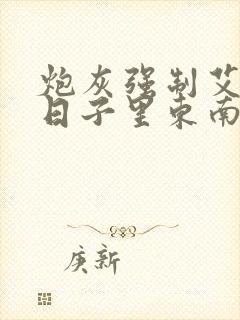 炮灰强制艾
日子里东南
庚新